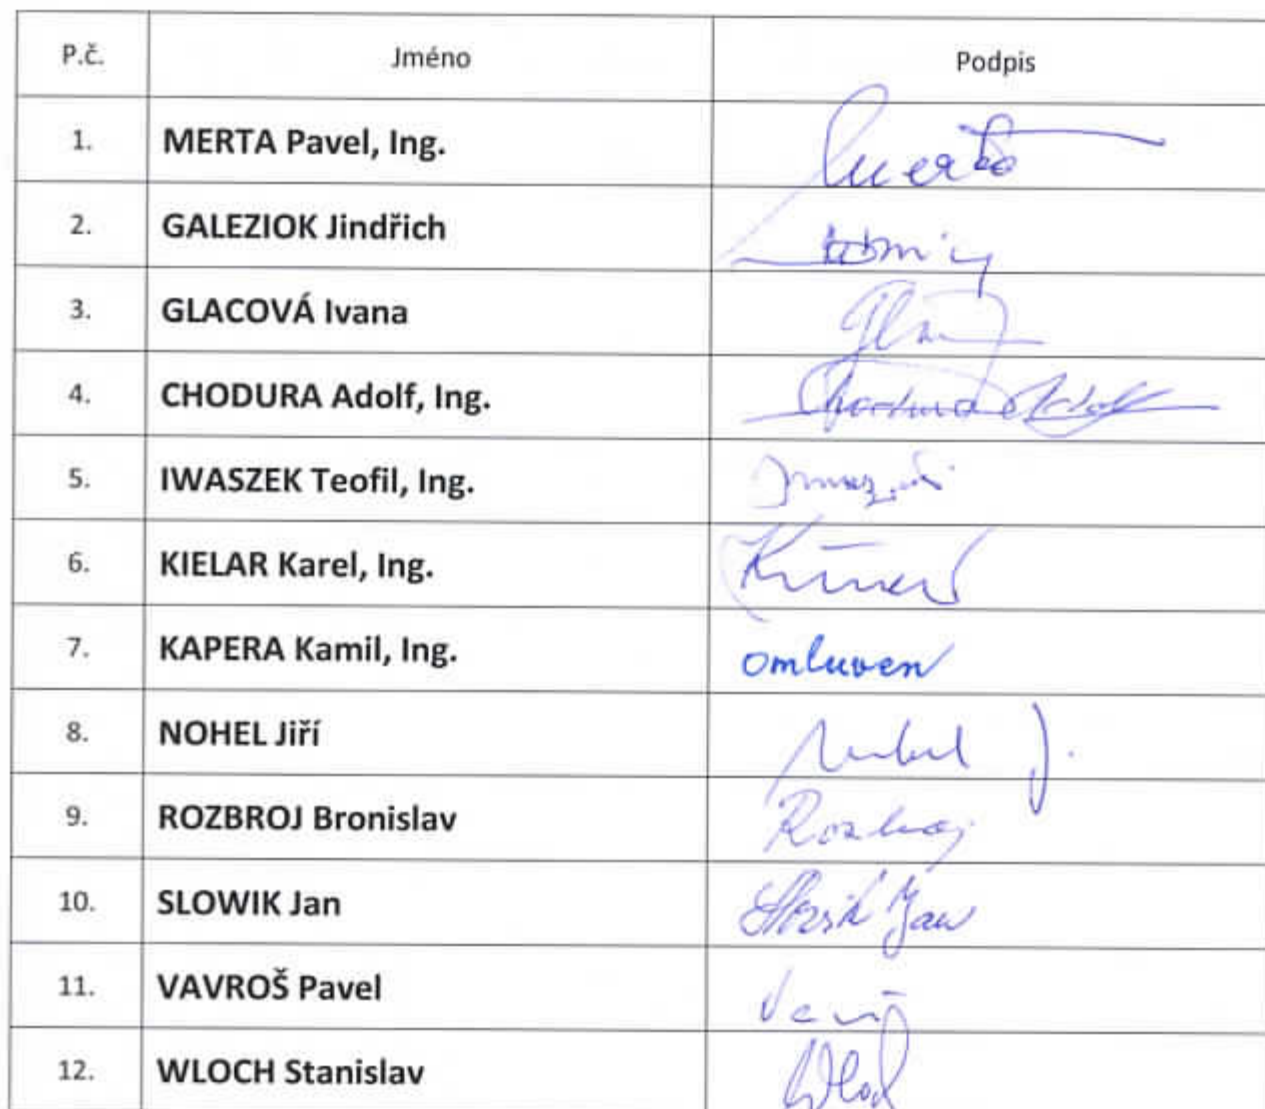 P.č. Jméno Podpis
1. MERTA Pavel, Ing. Merta
2. GALEZIOK Jindřich
3. GLACOVÁ Ivana
4. CHODURA Adolf, Ing. Chodura Adolf
5. IWASZEK Teofil, Ing.
6. KIELAR Karel, Ing.
7. KAPERA Kamil, Ing. omluven
8. NOHEL Jiří Nohel J.
9. ROZBROJ Bronislav Rozbroj
10. SLOWIK Jan Slowik Jan
11. VAVROŠ Pavel
12. WLOCH Stanislav Wloch